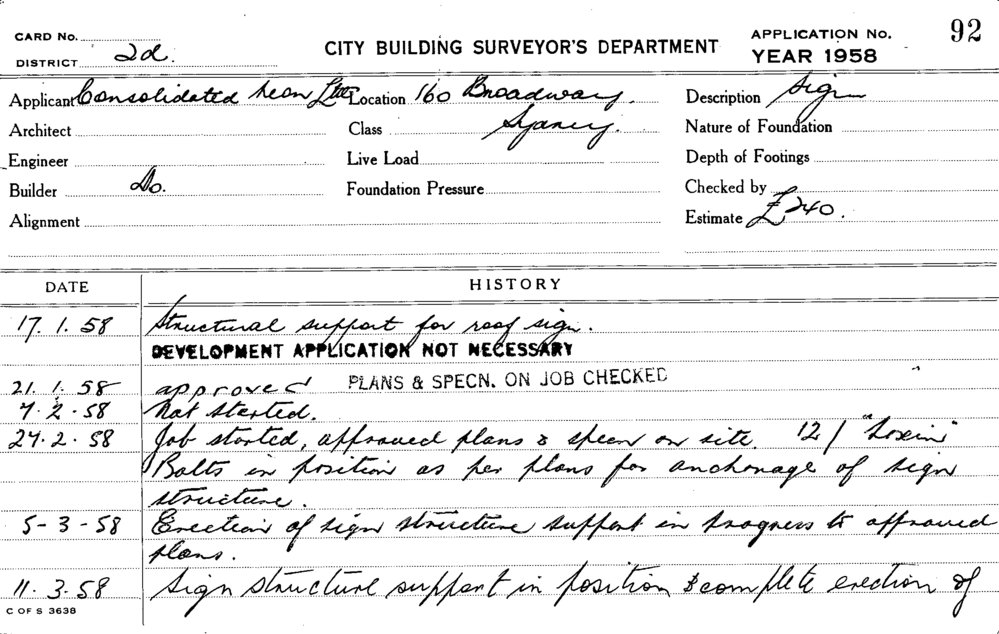 CARD No.
CITY BUILDING SURVEYOR'S DEPARTMENT
APPLICATION No. 92
DISTRICT 2d.
YEAR 1958
Applicant Consolidated Neon Location 160 Broadway. Description Sign
Architect Class Sydney. Nature of Foundation
Engineer Live Load Depth of Footings
Builder Do. Foundation Pressure Checked by
Alignment Estimate £240.
DATE HISTORY
17.1.58 Structural support for roof sign.
DEVELOPMENT APPLICATION NOT NECESSARY
21.1.58 approved PLANS & SPECN. ON JOB CHECKED
7.2.58 Not started.
24.2.58 Job started, approved plans & specn on site. 12/ "Loxin"
Bolts in position as per plans for anchorage of sign
structure.
5-3-58 Erection of sign structure support in progress to approved
plans.
11.3.58 Sign structure support in position & complete erection of
C OF S 3638